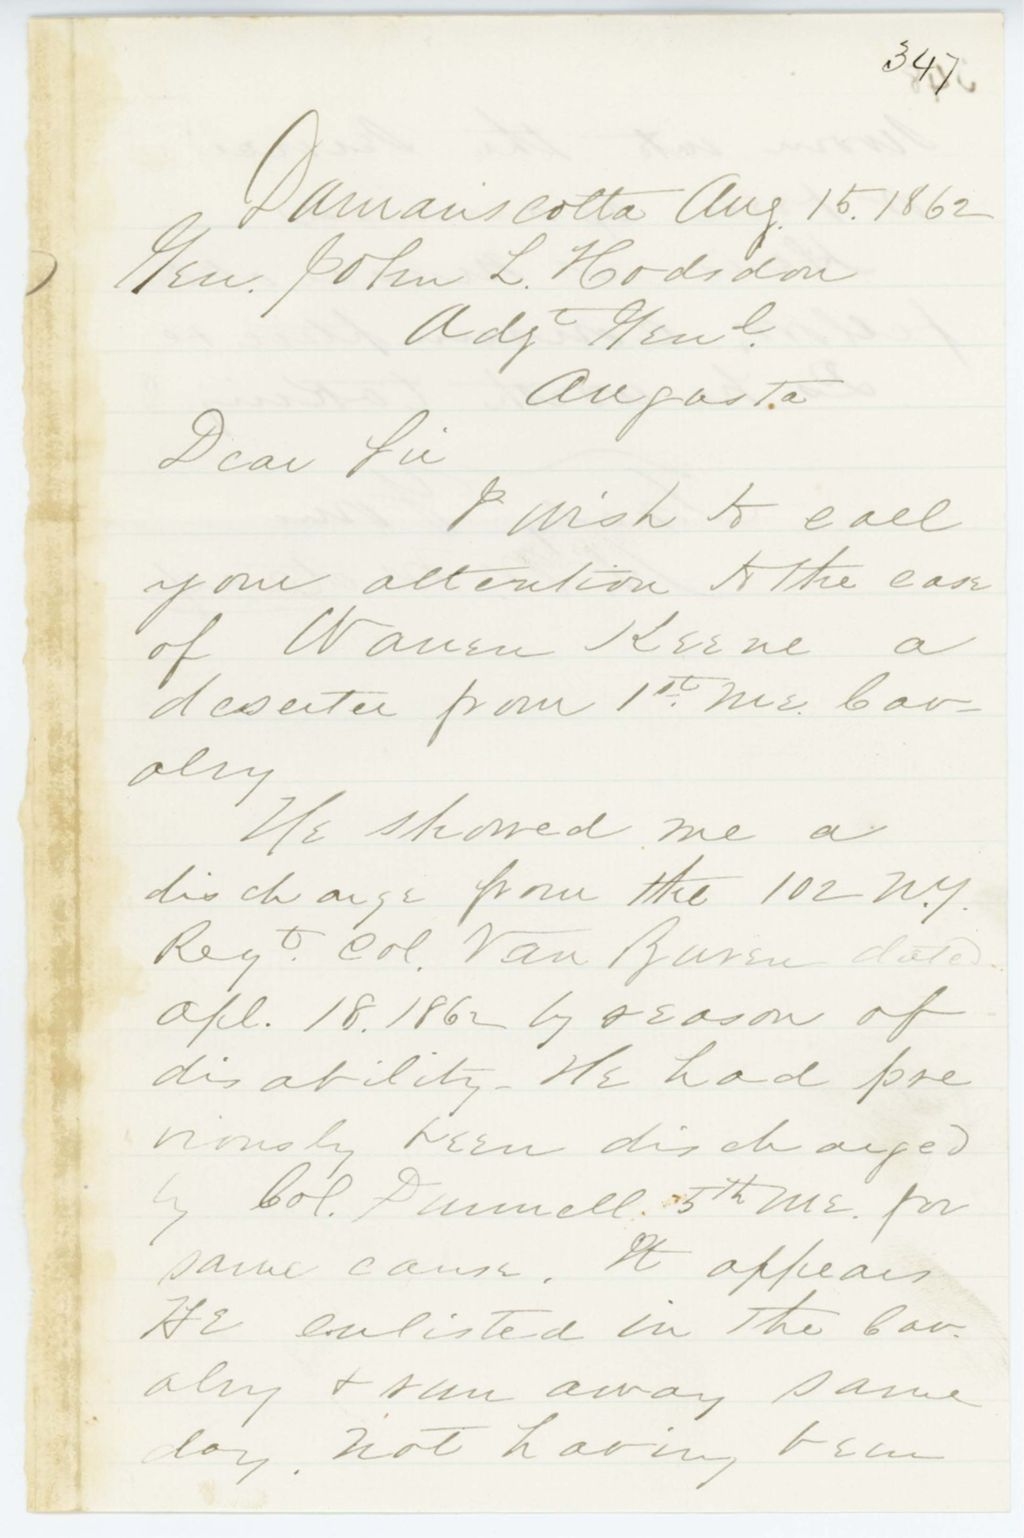 347
Damariscotta Aug. 15. 1862
Gen. John L. Hodsdon
Adjt Genl.
Augusta
Dear Sir
I wish to call
your attention to the case
of Warren Keene a
deserter from 1st. Me. Cav-
alry
He showed me a
discharge from the 102 N.Y.
Regt. Col. Van Buren dated
Apl. 18. 1862 by reason of
disability - He had pre
viously been discharged
by Col. Dunnell. 5th Me. for
same cause. It appears
He enlisted in the Cav.
alry & run away same
day. Not having been